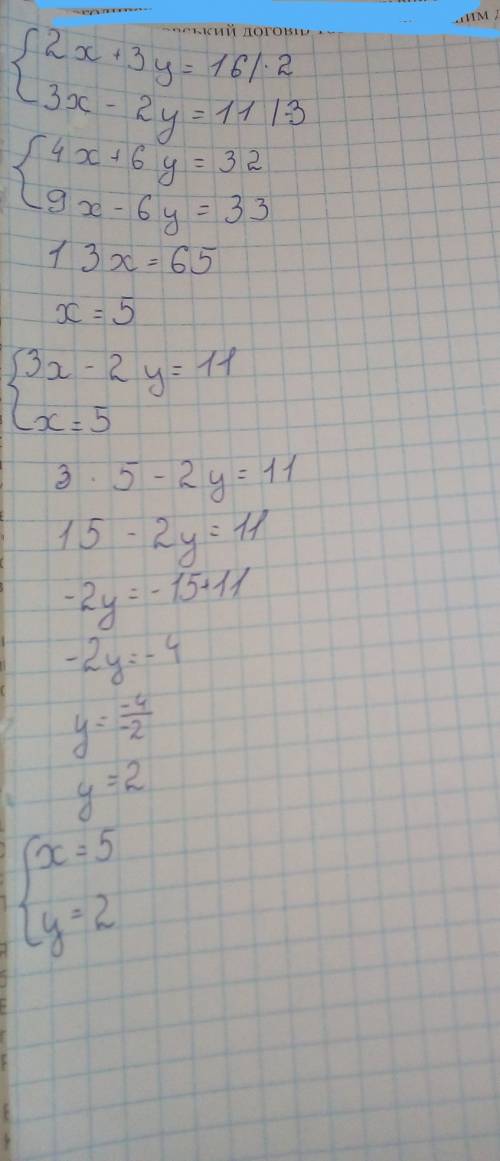 ський договір
2x + 3y = 16 | · 2
3x - 2y = 11 | · 3
4x + 6y = 32
9x - 6y = 33
13x = 65
x = 5
3x - 2y = 11
x = 5
3 · 5 - 2y = 11
15 - 2y = 11
-2y = -15+11
-2y = -4
y = -4/-2
y = 2
x = 5
y = 2